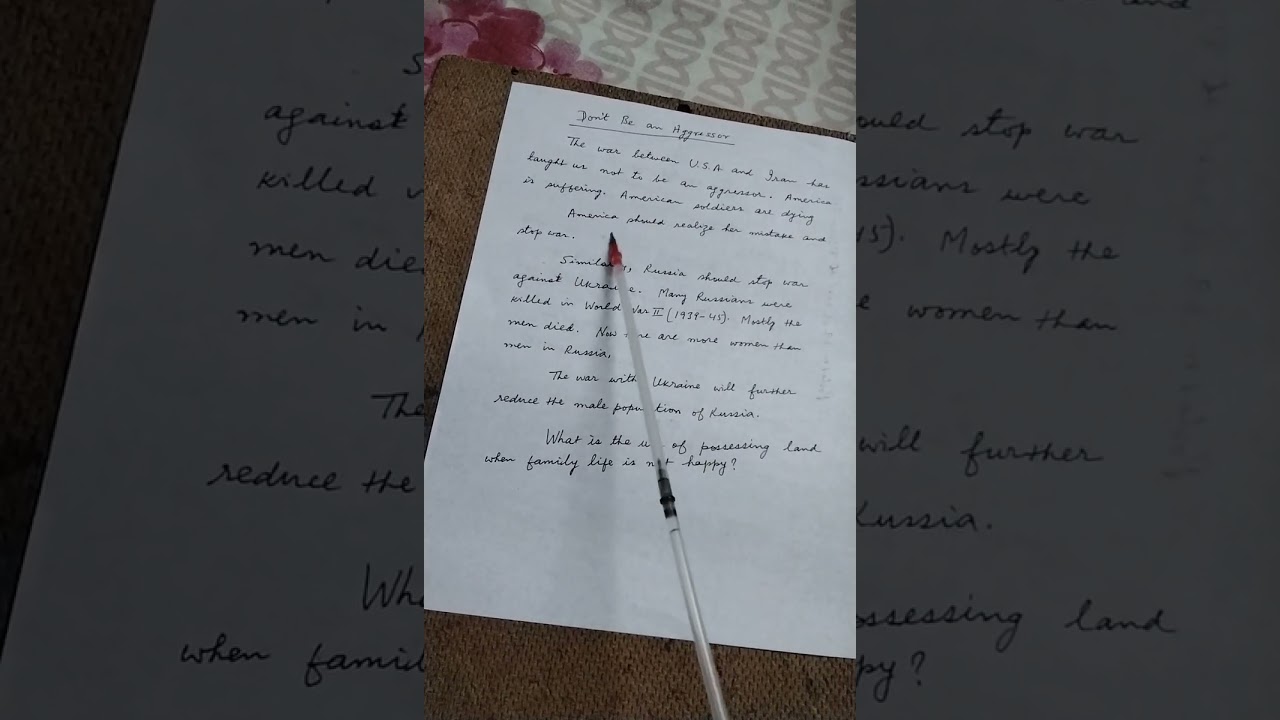 Don't Be an Aggressor
The war between U.S.A and Iran has
taught us not to be an aggressor. America
is suffering. American soldiers are dying
America should realize her mistake and
stop war.
Similarly, Russia should stop war
against Ukraine. Many Russians were
killed in World War II (1939-45). Mostly the
men died. Now there are more women than
men in Russia,
The war with Ukraine will further
reduce the male population of Russia.
What is the use of possessing land
when family life is not happy?